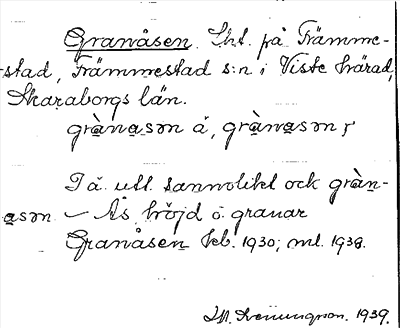 Granåsen. Lht. på Främme-
stad, Främmestad s:n i Viste härad,
Skaraborgs län.
grànasən å, grànasən
På utt. sannolikt ock gràn-
asən – Ås, höjd o. granar
Granåsen kb. 1930; ml. 1938.
1939.